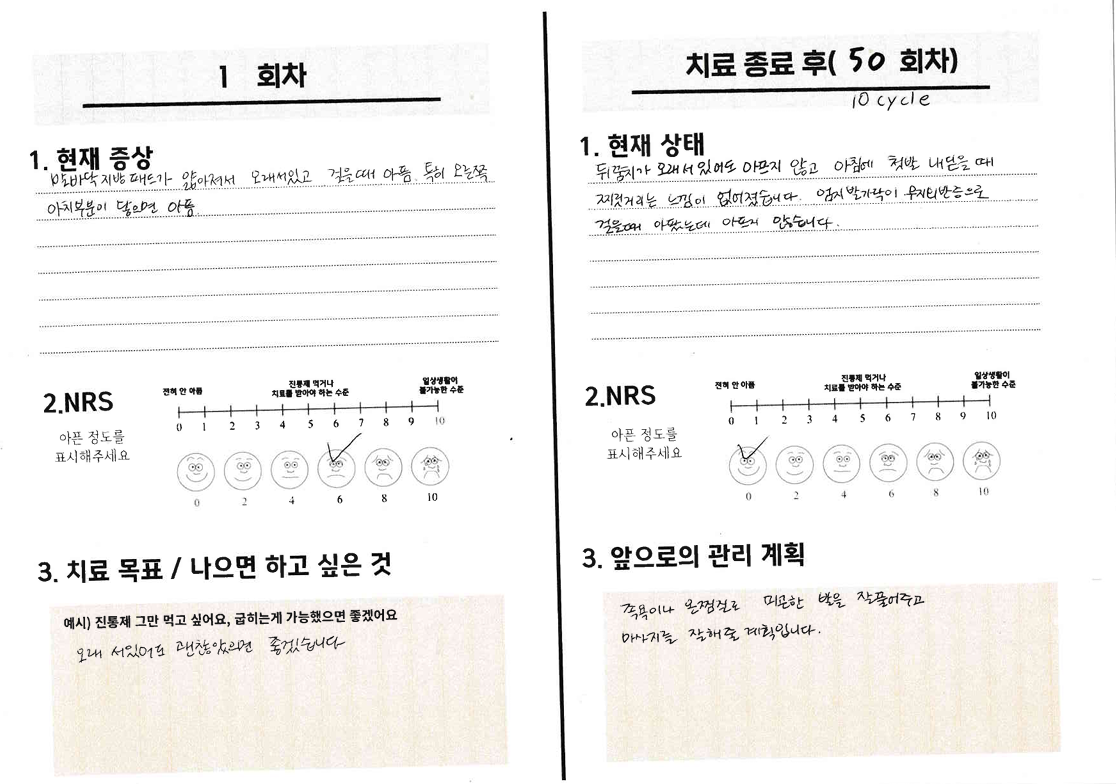 1 회차
1. 현재 증상
발바닥 지방패드가 얇아져서 오래서있고 걸을때 아픔. 특히 오른쪽
아치부분이 닿으면 아픔.
2.NRS
아픈 정도를
표시해주세요
전혀 안 아픔
진통제 먹거나
치료를 받아야 하는 수준
일상생활이
불가능한 수준
0 1 2 3 4 5 6 7 8 9 10
0 2 4 6 8 10
3. 치료 목표 / 나으면 하고 싶은 것
예시) 진통제 그만 먹고 싶어요, 굽히는게 가능했으면 좋겠어요
오래 서있어도 괜찮았으면 좋겠습니다
치료 종료 후( 50 회차)
10 cycle
1. 현재 상태
뒤꿈치가 오래서있어도 아프지 않고 아침에 첫발 내딛을 때
찌릿거리는 느낌이 없어졌습니다. 엄지발가락이 무지외반증으로
걸을때 아팠는데 아프지 않습니다.
2.NRS
아픈 정도를
표시해주세요
전혀 안 아픔
진통제 먹거나
치료를 받아야 하는 수준
일상생활이
불가능한 수준
0 1 2 3 4 5 6 7 8 9 10
0 2 4 6 8 10
3. 앞으로의 관리 계획
족욕이나 온찜질로 피곤한 발을 잘풀어주고
마사지를 잘해줄 계획입니다.